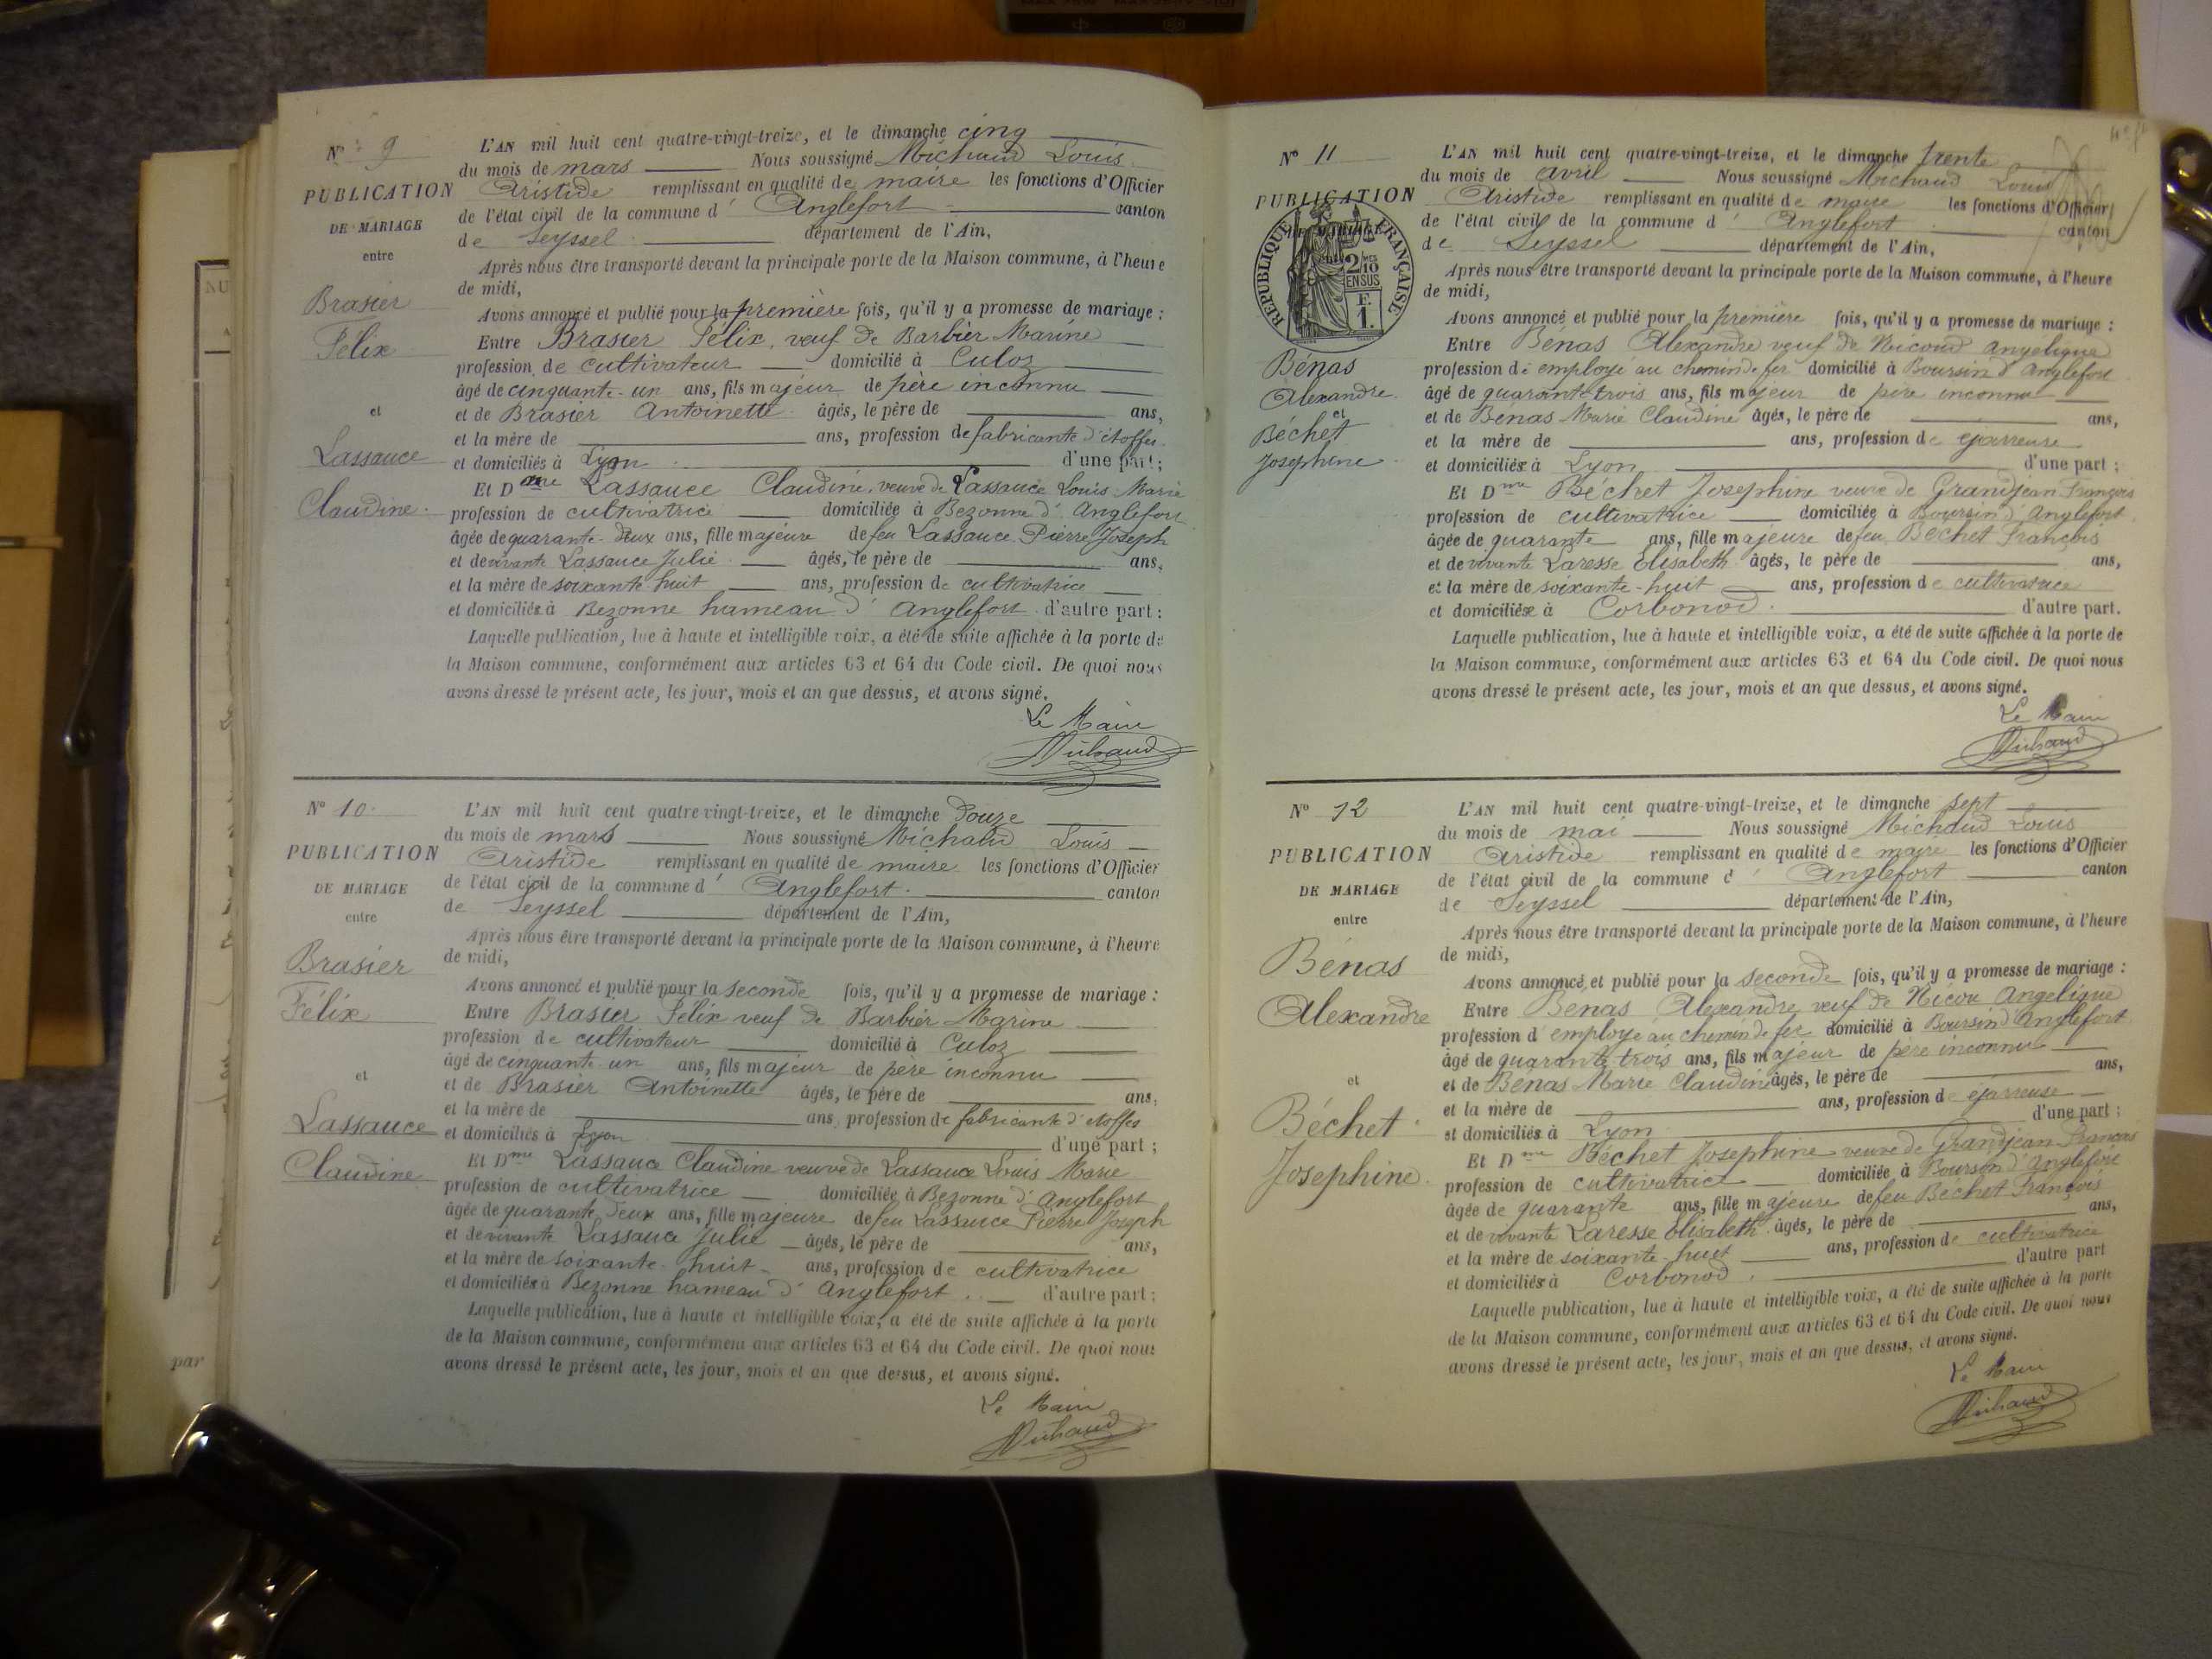 N° 9
PUBLICATION
DE MARIAGE
entre
Brasier
Félix
et
Lassauce
Claudine
L'AN mil huit cent quatre-vingt-treize, et le dimanche cinq
du mois de mars Nous soussigné Michaud Louis
Aristide remplissant en qualité de maire les fonctions d'Officier
de l'état civil de la commune d' Anglefort canton
de Seyssel département de l'Ain,
Après nous être transporté devant la principale porte de la Maison commune, à l'heure
de midi,
Avons annoncé et publié pour la première fois, qu'il y a promesse de mariage :
Entre Brasier Félix, veuf de Barbier Marine
profession de cultivateur domicilié à Culoz
âgé de cinquante-un ans, fils majeur de père inconnu
et de Brasier Antoinette âgés, le père de ans,
et la mère de ans, profession de fabricante d'étoffes
et domiciliés à Lyon d'une part ;
Et Dme Lassauce Claudine, veuve de Lassauce Louis Marie
profession de cultivatrice domiciliée à Bezonne d'Anglefort
âgée de quarante-deux ans, fille majeure de feu Lassauce Pierre Joseph
et de vivante Lassauce Julie âgés, le père de ans,
et la mère de soixante-huit ans, profession de cultivatrice
et domiciliés à Bezonne hameau d'Anglefort d'autre part ;
Laquelle publication, lue à haute et intelligible voix, a été de suite affichée à la porte de
la Maison commune, conformément aux articles 63 et 64 du Code civil. De quoi nous
avons dressé le présent acte, les jour, mois et an que dessus, et avons signé.
Le Maire
Michaud
N° 10
PUBLICATION
DE MARIAGE
entre
Brasier
Félix
et
Lassauce
Claudine
L'AN mil huit cent quatre-vingt-treize, et le dimanche douze
du mois de mars Nous soussigné Michaud Louis
Aristide remplissant en qualité de maire les fonctions d'Officier
de l'état civil de la commune d' Anglefort canton
de Seyssel département de l'Ain,
Après nous être transporté devant la principale porte de la Maison commune, à l'heure
de midi,
Avons annoncé et publié pour la seconde fois, qu'il y a promesse de mariage :
Entre Brasier Félix veuf de Barbier Marine
profession de cultivateur domicilié à Culoz
âgé de cinquante-un ans, fils majeur de père inconnu
et de Brasier Antoinette âgés, le père de ans,
et la mère de ans, profession de fabricante d'étoffes
et domiciliés à Lyon d'une part ;
Et Dme Lassauce Claudine veuve de Lassauce Louis Marie
profession de cultivatrice domiciliée à Bezonne d'Anglefort
âgée de quarante deux ans, fille majeure de feu Lassauce Pierre Joseph
et de vivante Lassauce Julie âgés, le père de ans,
et la mère de soixante-huit ans, profession de cultivatrice
et domiciliés à Bezonne hameau d'Anglefort d'autre part ;
Laquelle publication, lue à haute et intelligible voix, a été de suite affichée à la porte
de la Maison commune, conformément aux articles 63 et 64 du Code civil. De quoi nous
avons dressé le présent acte, les jour, mois et an que dessus, et avons signé.
Le Maire
Michaud
par
N° 11
PUBLICATION
DE MARIAGE
RÉPUBLIQUE FRANÇAISE
2/10
EN SUS
F.
1.
Bénas
Alexandre
et
Béchet
Josephine
L'AN mil huit cent quatre-vingt-treize, et le dimanche trente
du mois de avril Nous soussigné Michaud Louis
Aristide remplissant en qualité de maire les fonctions d'Officier
de l'état civil de la commune d' Anglefort canton
de Seyssel département de l'Ain,
Après nous être transporté devant la principale porte de la Maison commune, à l'heure
de midi,
Avons annoncé et publié pour la première fois, qu'il y a promesse de mariage :
Entre Bénas Alexandre veuf de Nicoud Angelique
profession d'employé au chemin de fer domicilié à Boursin d'Anglefort
âgé de quarante-trois ans, fils majeur de père inconnu
et de Bénas Marie Claudine âgés, le père de ans,
et la mère de ans, profession de éjarreuse
et domiciliés à Lyon d'une part ;
Et Dme Béchet Josephine veuve de Grandjean François
profession de cultivatrice domiciliée à Boursin d'Anglefort
âgée de quarante ans, fille majeure de feu Béchet François
et de vivante Laresse Elisabeth âgés, le père de ans,
et la mère de soixante-huit ans, profession de cultivatrice
et domiciliés à Corbonod d'autre part.
Laquelle publication, lue à haute et intelligible voix, a été de suite affichée à la porte de
la Maison commune, conformément aux articles 63 et 64 du Code civil. De quoi nous
avons dressé le présent acte, les jour, mois et an que dessus, et avons signé.
Le Maire
Michaud
N° 12
PUBLICATION
DE MARIAGE
entre
Bénas
Alexandre
et
Béchet
Josephine
L'AN mil huit cent quatre-vingt-treize, et le dimanche sept
du mois de mai Nous soussigné Michaud Louis
Aristide remplissant en qualité de maire les fonctions d'Officier
de l'état civil de la commune d' Anglefort canton
de Seyssel département de l'Ain,
Après nous être transporté devant la principale porte de la Maison commune, à l'heure
de midi,
Avons annoncé et publié pour la seconde fois, qu'il y a promesse de mariage :
Entre Benas Alexandre veuf de Nicou Angelique
profession d'employé au chemin de fer domicilié à Boursin d'Anglefort
âgé de quarante-trois ans, fils majeur de père inconnu
et de Bénas Marie Claudine âgés, le père de ans,
et la mère de ans, profession de éjarreuse
et domiciliés à Lyon d'une part ;
Et Dme Béchet Josephine veuve de Grandjean François
profession de cultivatrice domiciliée à Boursin d'Anglefort
âgée de quarante ans, fille majeure de feu Béchet François
et de vivante Laresse Elisabeth âgés, le père de ans,
et la mère de soixante-huit ans, profession de cultivatrice
et domiciliés à Corbonod d'autre part
Laquelle publication, lue à haute et intelligible voix, a été de suite affichée à la porte
de la Maison commune, conformément aux articles 63 et 64 du Code civil. De quoi nous
avons dressé le présent acte, les jour, mois et an que dessus, et avons signé.
Le Maire
Michaud